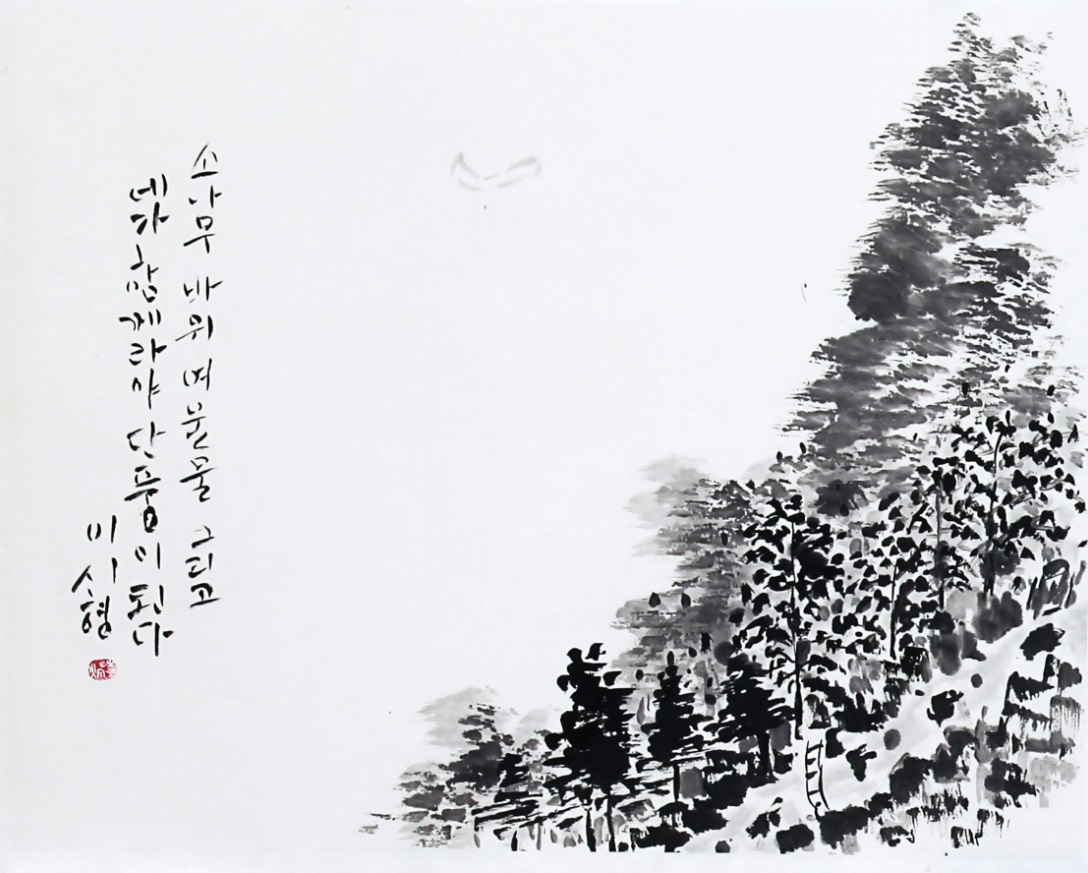 소나무 바위 여울물 그리고
네가 함께라야 단풍이 된다
이시형